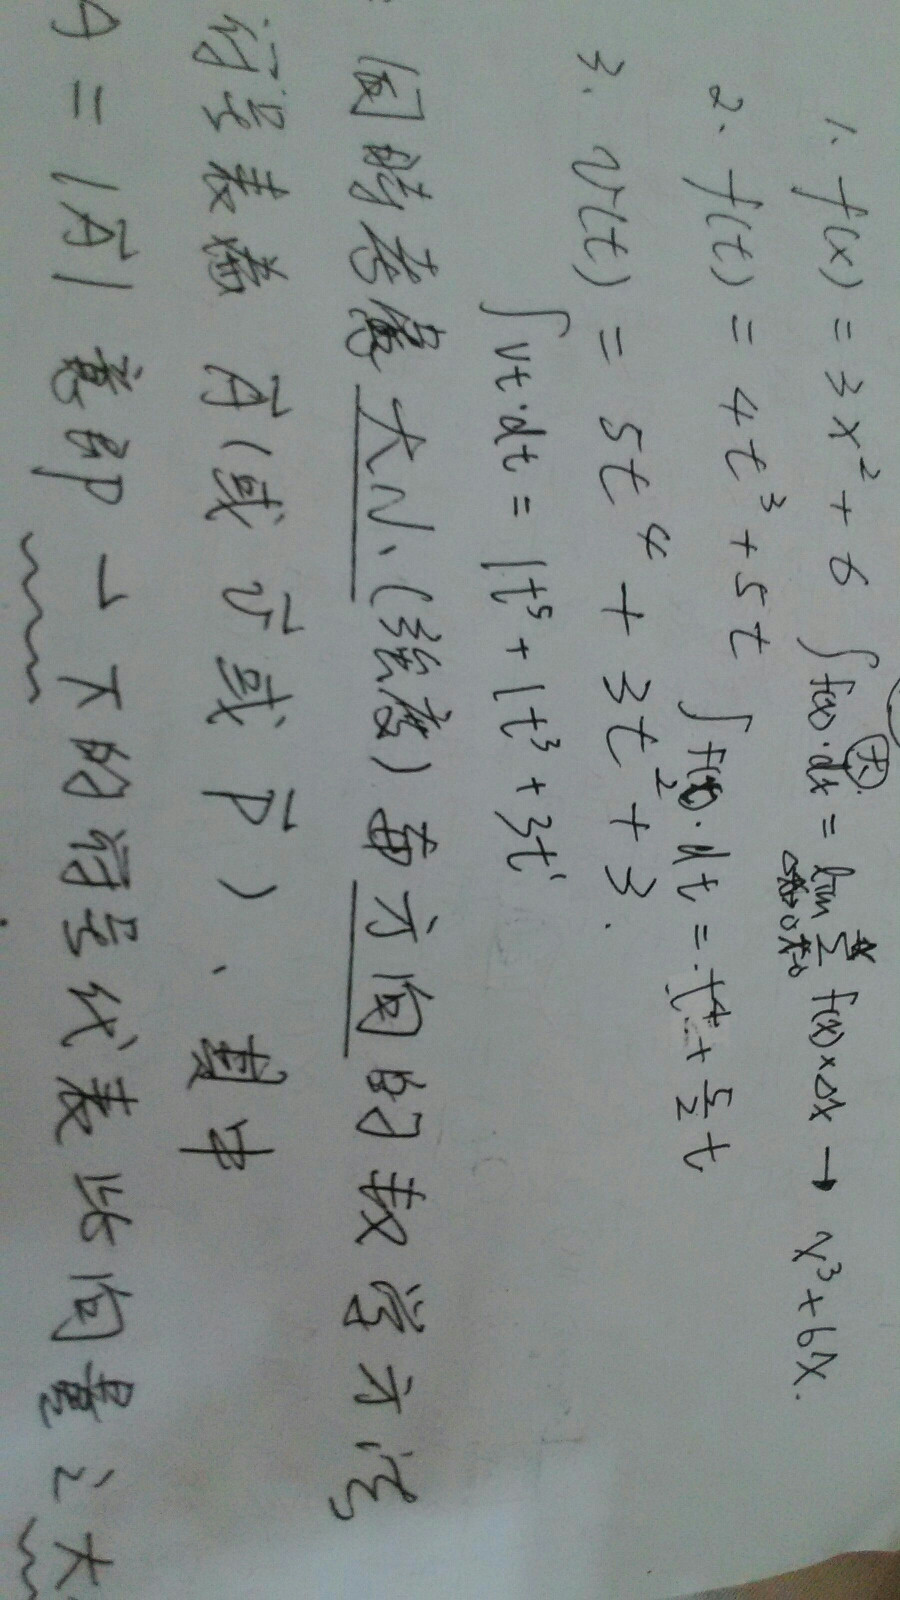 1. f(x) = 3x² + 6 ∫f(x)·dx = lim Σ f(x)×Δx → x³+6x.
2. f(t) = 4t³ + 5t ∫f(x)·dt = t⁴ + 5/2 t
3. v(t) = 5t⁴ + 3t² + 3.
∫vt·dt = 1t⁵ + 1t³ + 3t¹
: 同時考慮大小(強度)與方向的数学方法
符号表為 A⃗(或 v⃗ 或 P⃗)、其中
A = |A⃗| 意即一下的符号代表此向量之大